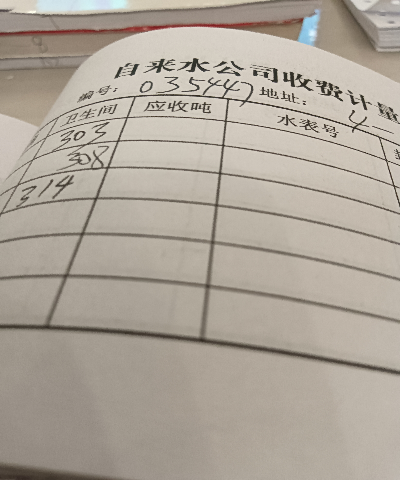 自来水公司收费计量
编号: 035447 地址: 4-
卫生间 应收吨 水表号
303
308
314